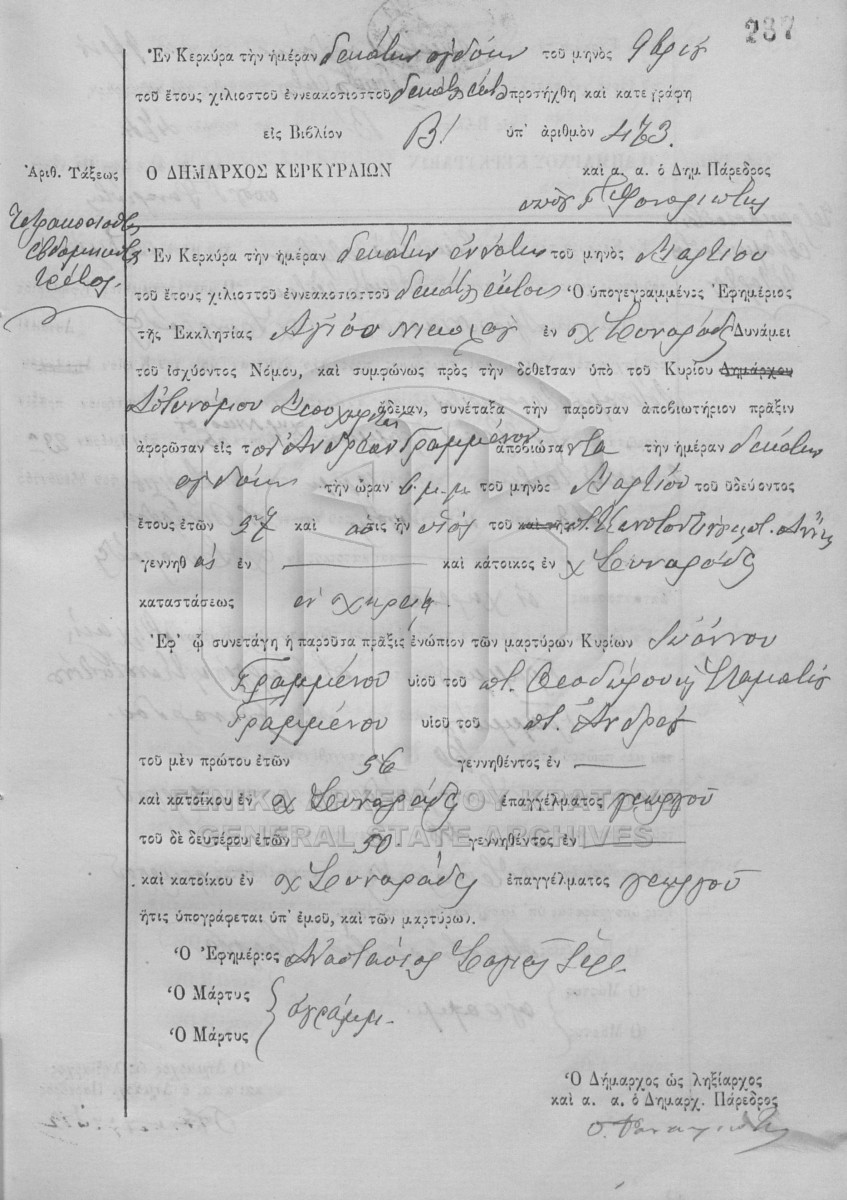 237
Ἐν Κερκύρα τὴν ἡμέραν δεκάτην ὀγδόην τοῦ μηνὸς 9βρίου
τοῦ ἔτους χιλιοστοῦ ἐννεακοσιοστοῦ δεκάτου ἕκτου προσήχθη καὶ κατεγράφη
εἰς Βιβλίον Β! ὑπ' ἀριθμὸν 473.
Ἀριθ. Τάξεως
Ο ΔΗΜΑΡΧΟΣ ΚΕΡΚΥΡΑΙΩΝ καὶ α. α. ὁ Δημ. Πάρεδρος
Τετρακοσιοστὸς
ἑβδομηκοστὸς
τρίτος.
Ἐν Κερκύρα τὴν ἡμέραν δεκάτην ἐννάτην τοῦ μηνὸς Μαρτίου
τοῦ ἔτους χιλιοστοῦ ἐννεακοσιοστοῦ δεκάτου ἕκτου Ὁ ὑπογεγραμμένος Ἐφημέριος
τῆς Ἐκκλησίας Ἁγίου Νικολάου ἐν χ Συναράδες Δυνάμει
τοῦ ἰσχύοντος Νόμου, καὶ συμφώνως πρὸς τὴν δοθεῖσαν ὑπὸ τοῦ Κυρίου Δημάρχου
Ἀστυνόμου ἄδειαν, συνέταξα τὴν παροῦσαν ἀποβιωτήριον πρᾶξιν
ἀφορῶσαν εἰς τὸν Ἀνδρέαν Γραμμένον ἀποβιώσαντα τὴν ἡμέραν δεκάτην
ὀγδόην τὴν ὥραν 6 μ.μ. τοῦ μηνὸς Μαρτίου τοῦ ὁδεύοντος
ἔτους ἐτῶν 57 καὶ ὅστις ἦν υἱὸς τοῦ καὶ τῆς π. Κωνσταντίνου π. Ἄννης
γεννηθ εἰς ἐν — καὶ κάτοικος ἐν χ Συναράδες
καταστάσεως ἐν χηρείᾳ.
Ἐφ' ᾧ συνετάγη ἡ παροῦσα πρᾶξις ἐνώπιον τῶν μαρτύρων Κυρίων Ἰωάννου
Γραμμένου υἱοῦ τοῦ π. Θεοδώρου ἢ Σταματίου
Γραμμένου υἱοῦ τοῦ π. Ἀνδρέα
τοῦ μὲν πρώτου ἐτῶν 56 γεννηθέντος ἐν —
καὶ κατοίκου ἐν χ Συναράδες ἐπαγγέλματος γεωργοῦ
ΓΕΝΙΚΑ ΑΡΧΕΙΑ ΤΟΥ ΚΡΑΤΟΥΣ
GENERAL STATE ARCHIVES
τοῦ δὲ δευτέρου ἐτῶν 50 γεννηθέντος ἐν —
καὶ κατοίκου ἐν χ Συναράδες ἐπαγγέλματος γεωργοῦ
ἥτις ὑπογράφεται ὑπ' ἐμοῦ, καὶ τῶν μαρτύρων.
Ὁ Ἐφημέριος Ἀναστάσιος ἱερ.
Ὁ Μάρτυς
ἀγράμμ.
Ὁ Μάρτυς
Ὁ Δήμαρχος ὡς ληξίαρχος
καὶ α. α. ὁ Δημαρχ. Πάρεδρος